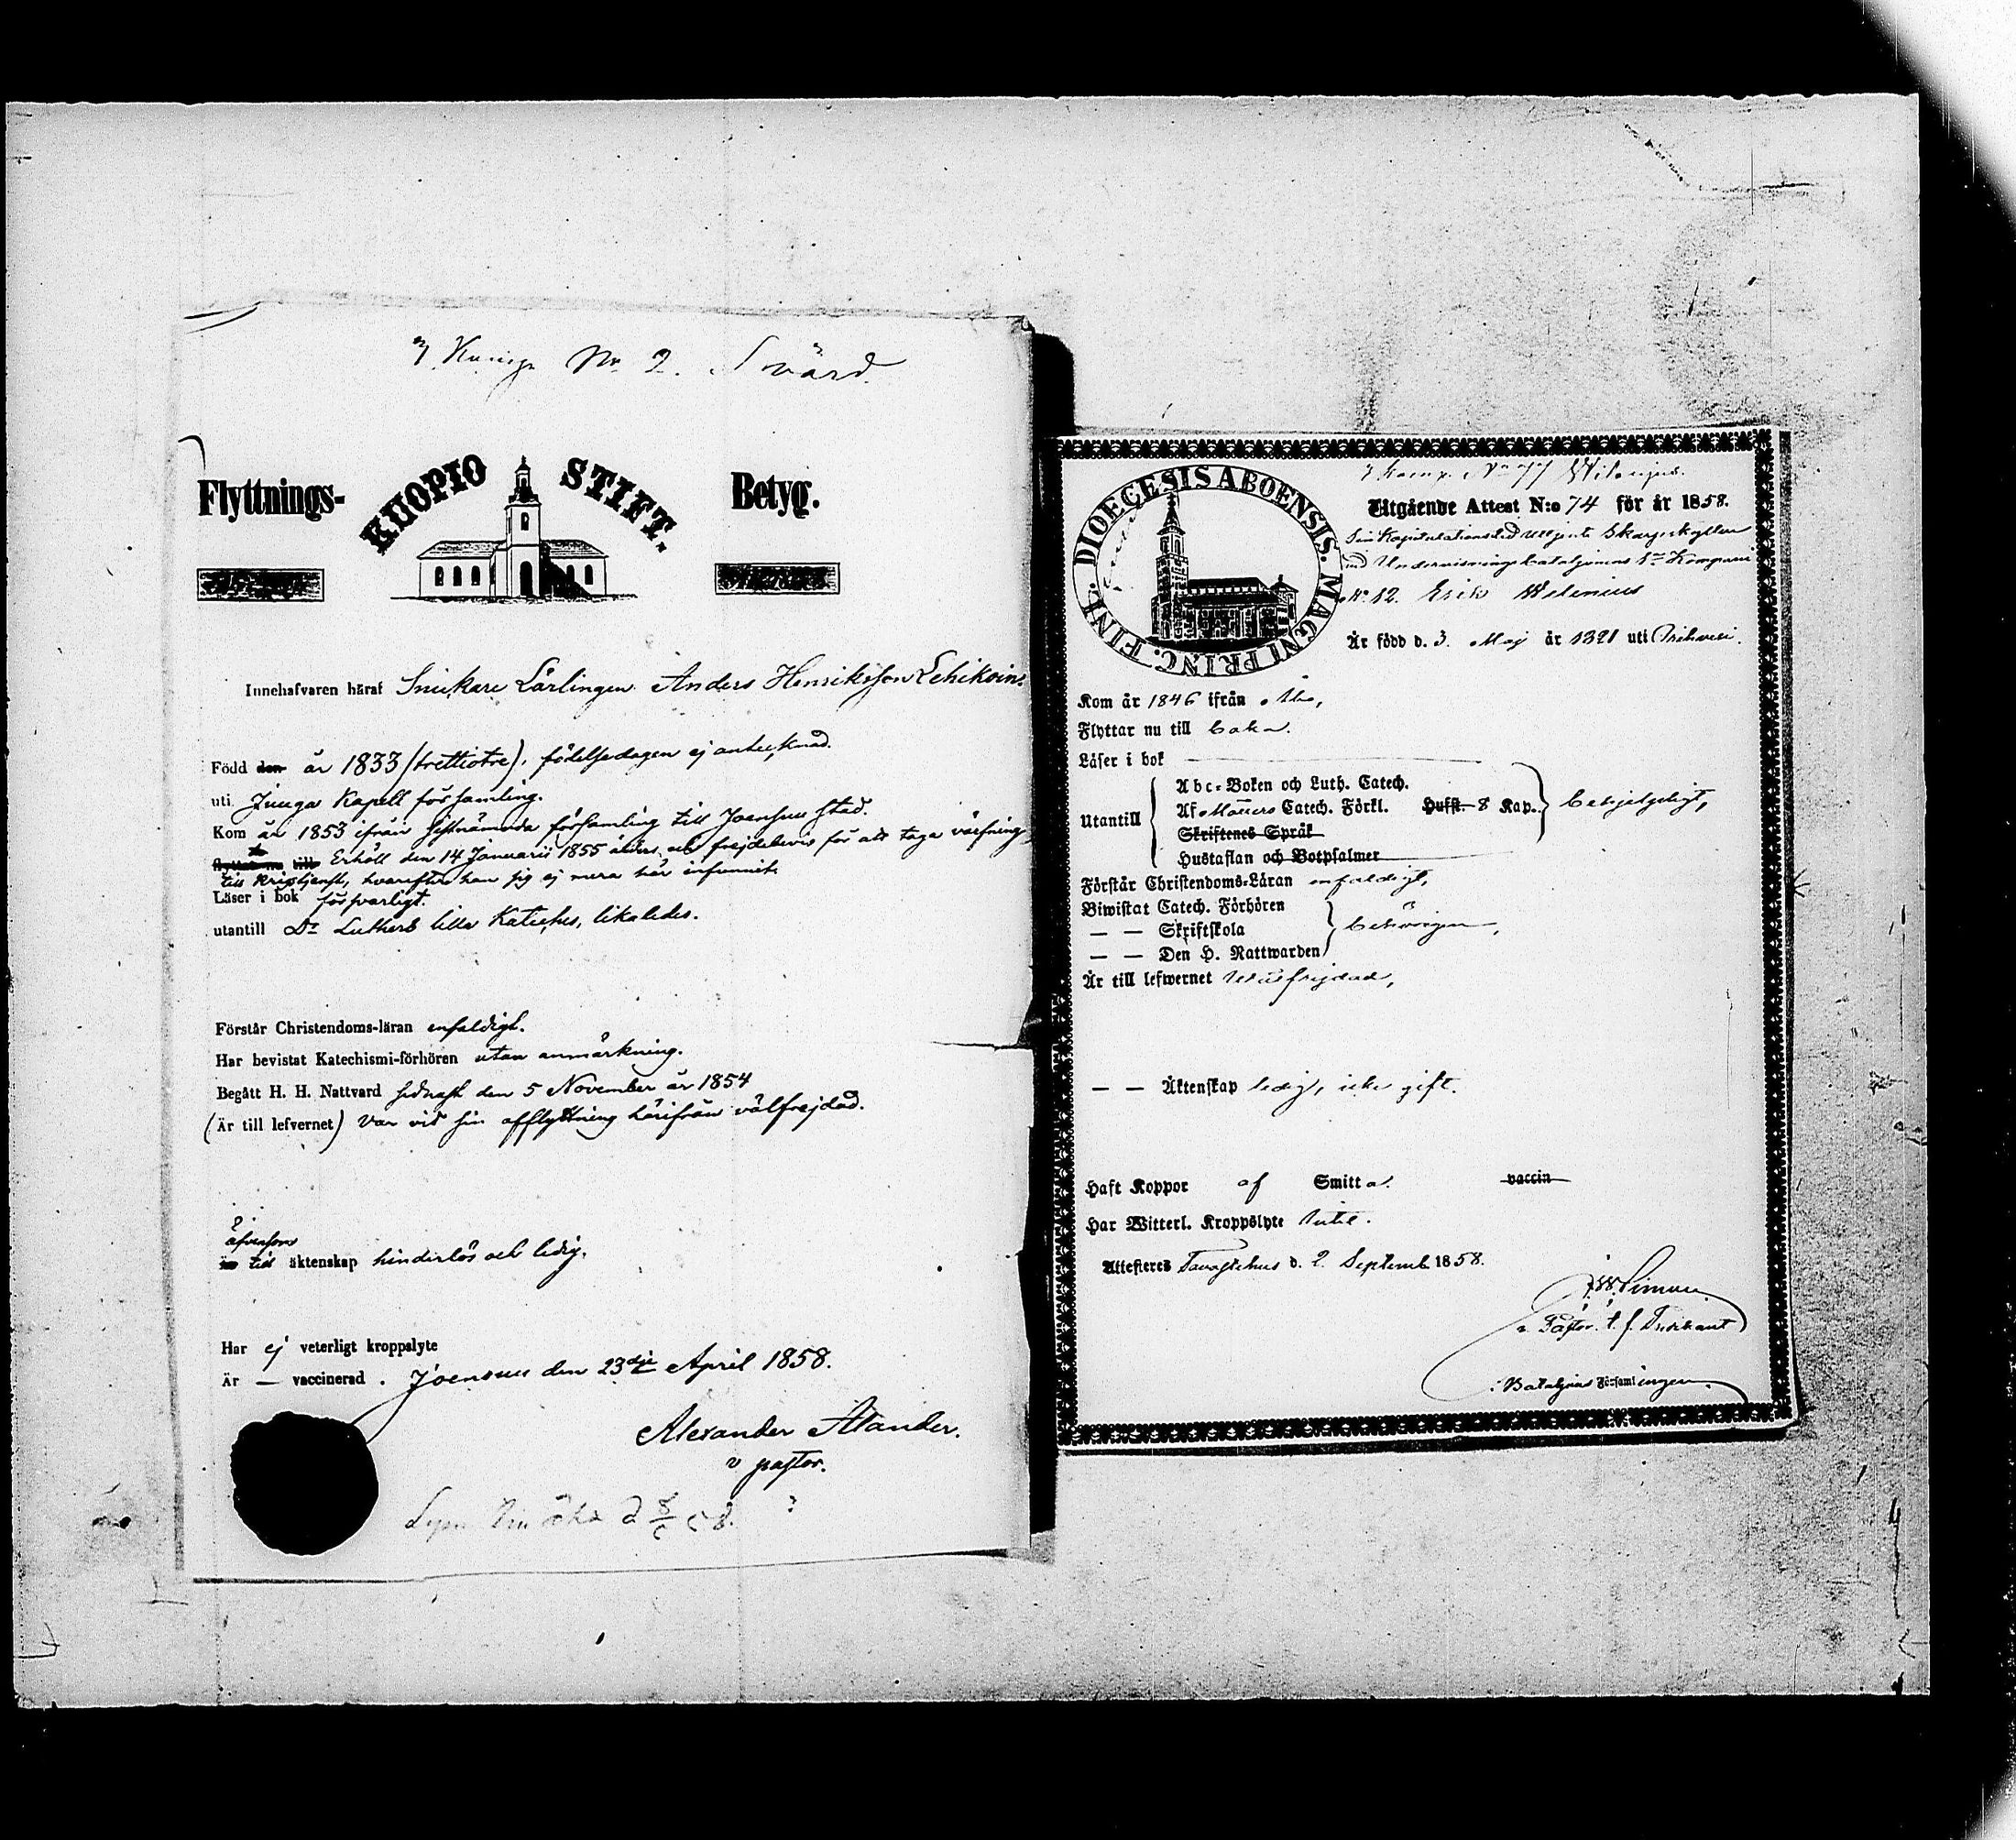 Komp. No 2. Svärd.
Flyttnings- KUOPIO STIFT. Betyg.
Innehafvaren häraf Snickare Lärlingen Anders Henriksson Lehikoin
Född den år 1833 (trettiotre), födelsedagen ej antecknad.
uti Juuga Kapell församling.
Kom år 1853 ifrån sistnämnda församling till Joensuu stad.
Erhöll den 14 Januarii 1855 och frejdebevis för att taga värfning
till krigstjenst, hvarefter han sig ej mera här infunnit.
Läser i bok försvarligt.
utantill Dr Luthers lilla Kateches, likaledes.
Förstår Christendoms-läran enfaldigt.
Har bevistat Katechismi-förhören utan anmärkning.
Begått H. H. Nattvard sednast den 5 November år 1854
(Är till lefvernet) var vid sin afflyttning härifrån välfrejdad.
äfvensom
till äktenskap hinderlös och ledig.
Har ej veterligt kroppslyte
Är — vaccinerad. Joensuu den 23dje April 1858.
Alexander Alander.
v pastor.
DIOECESIS ABOENSIS. MAGNI PRINC. FINL.
Utgående Attest N:o 74 för år 1858.
Skarpskytten
vid Undervisnings bataljonens Kompani
No 12. Erik Welenius
Är född d. 3. Maj år 1821 uti
Kom år 1846 ifrån Åbo,
Flyttar nu till
Läser i bok
Utantill
Abc-Boken och Luth. Catech.
Af Catech. Förkl. Husst. 8 Kap.
Skriftenes Språk
Hustaflan och Botpsalmer
Förstår Christendoms-Läran enfaldigt,
Biwistat Catech. Förhören
— — Skriftskola
— — Den H. Nattwarden
behörigen,
Är till lefwernet välfrejdad,
— — Äktenskap ledig, icke gift.
Haft Koppor af Smitta. vaccin
Har Witterl. Kroppslyte intet.
Attesteres Tavastehus d. 2 Septemb. 1858.
v. Pastor. t. f. Predikant
i Bataljons Församlingen.